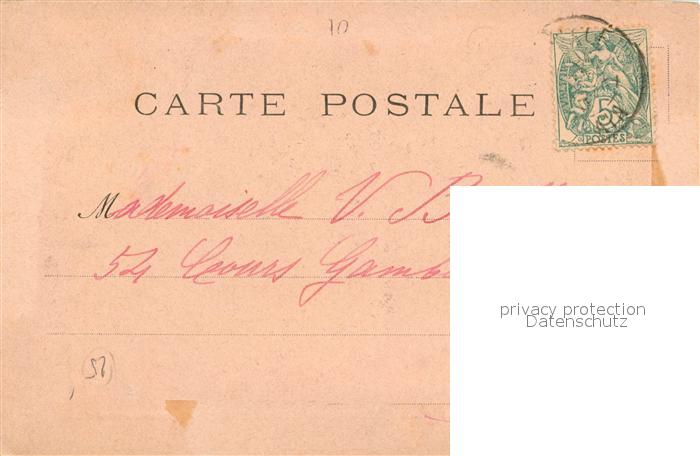 10
CARTE POSTALE
5
POSTES
Mademoiselle V. B
54 Cours Gamb
privacy protection
Datenschutz